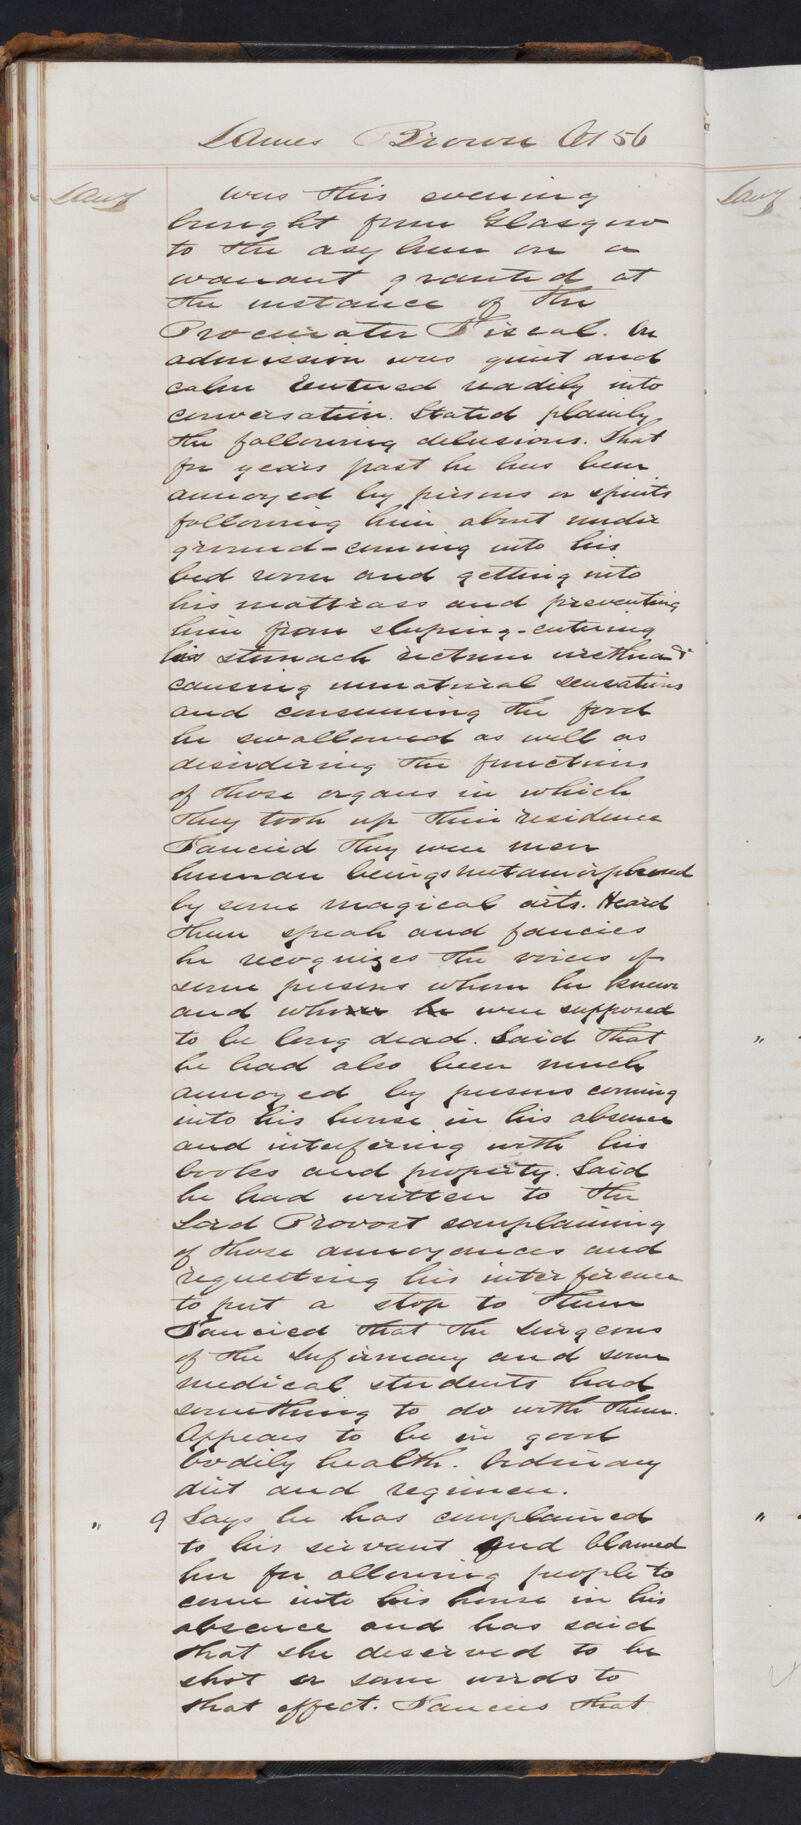 James Brown Æt 56
Jany was this evening Jany
brought from Glasgow
to the asylum on a
warrant granted at
the instance of the
Procurator Fiscal. On
admission was quiet and
calm Entered readily into
conversation. Stated plainly
the following delusions. That
for years past he has been
annoyed by persons or spirits
following him about under
ground - coming into his
bed room and getting into
his mattrass and preventing
him from sleeping - entering
his stomach rectum urethra &
causing unnatural sensations
and consuming the food
he swallowed as well as
disordering the functions
of those organs in which
they took up their residence
Fancied they were men
human beings metamorphosed
by some magical arts. Heard
them speak and fancies
he recognizes the voices of
some persons whom he knew
and whom he were supposed
to be long dead. Said that "
he had also been much
annoyed by persons coming
into his house in his absence
and interfering with his
books and property. Said
he had written to the
Lord Provost complaining
of those annoyances and
requesting his interference
to put a stop to them
Fancied that the surgeons
of the Infirmary and some
medical students had
something to do with them.
Appears to be in good
bodily health. Ordinary
diet and regimen.
" 9 Says he has complained "
to his servant and blamed
her for allowing people to
come into his house in his
absence and has said
that she deserved to be
shot or some words to
that effect. Fancies that